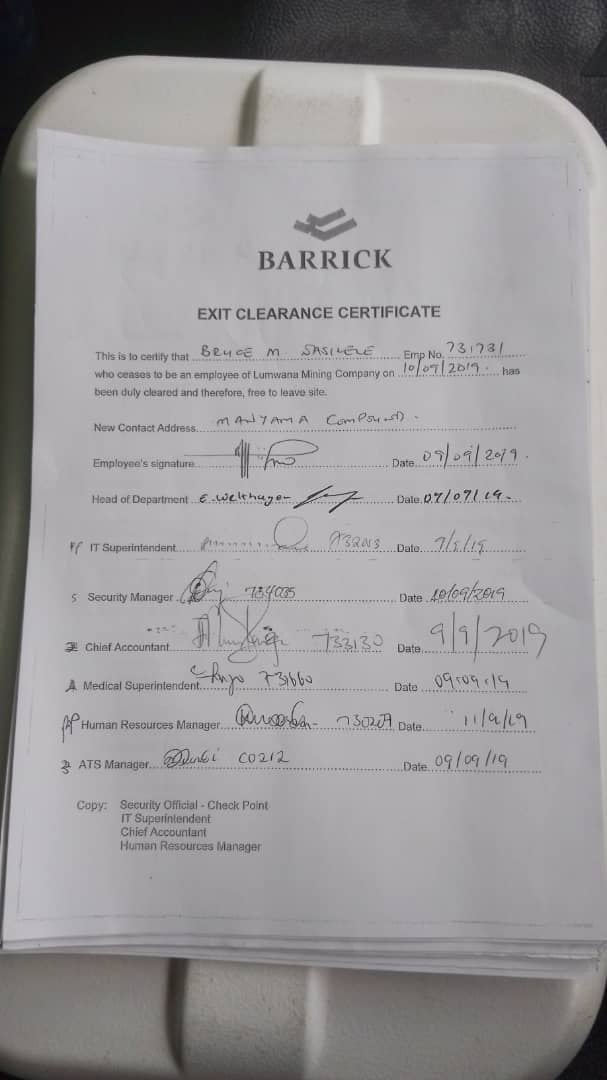 BARRICK
EXIT CLEARANCE CERTIFICATE
This is to certify that BRUCE M SASILELE Emp No. 731731
who ceases to be an employee of Lumwana Mining Company on 10/09/2019. has
been duly cleared and therefore, free to leave site.
New Contact Address. MANYAMA COMPOUND.
Employee's signature Date 09/09/2019.
Head of Department E. Date 07/07/19.
IT Superintendent Date
Security Manager 734035 Date 10/09/2019
Chief Accountant 733130 Date 9/9/2019
Medical Superintendent 731660 Date 09.09.19
Human Resources Manager 730207 Date 11/9/19
ATS Manager C0212 Date 09/09/19
Copy: Security Official - Check Point
IT Superintendent
Chief Accountant
Human Resources Manager